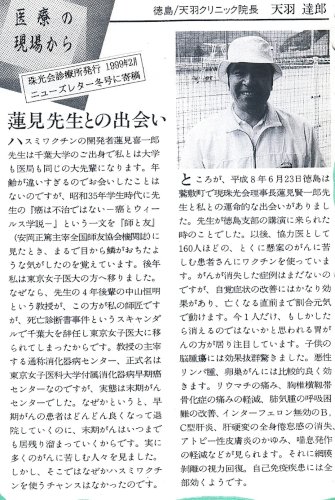 医療の
現場から
徳島/天羽クリニック院長 天羽達郎
珠光会診療所発行 1999年2月
ニューズレター冬号に寄稿
蓮見先生との出会い
ハスミワクチンの開発者蓮見喜一郎
先生は千葉大学のご出身で私とは大学
も医局も同じの大先輩になります。年
齢が違いすぎるのでお会いしたことは
ないのですが、昭和35年学生時代に先
生の『癌は不治ではない－癌とウィー
ルス学説－』という一文を『師と友』
(安岡正篤主宰全国師友協会機関誌)に
見たとき、まるで目から鱗がおちたよ
うな気がしたのを覚えています。後年
私は東京女子医大の方へ移りました。
なぜなら、先生の4年後輩の中山恒明
という教授が、この方が私の師匠です
が、死亡診断書事件というスキャンダ
ルで千葉大を辞任し東京女子医大に移
られてしまったからです。教授の主宰
する通称消化器病センター、正式名は
東京女子医科大学付属消化器病早期癌
センターなのですが、実態は末期がん
センターでした。なぜかというと、早
期がんの患者はどんどん良くなって退
院していくのに、末期がんはいつまで
も居残り溜まっていくからです。実に
多くのがんに苦しむ人々を見ました。
しかし、そこではなぜかハスミワクチン
を使うチャンスはなかったのです。
ところが、平成8年6月23日徳島は
鷲敷町で現珠光会理事長蓮見賢一郎先
生と私との運命的な出会いがありまし
た。先生が徳島支部の講演に来られた
時のことでした。以後、協力医として
160人ほどの、とくに懇案のがんに苦し
む患者さんにワクチンを使っていま
す。がんが消失した症例はまだないの
ですが、自覚症状の改善にはかなり効
果があり、亡くなる直前まで割合元気
で動けます。今1人だけ、もしかした
ら消えるのではないかと思われる胃が
んの方が居り注目しています。子供の
脳腫瘍には効果抜群驚きました。悪性
リンパ腫、卵巣がんには比較的良く効
きます。リウマチの痛み、胸椎横靭帯
骨化症の痛みの軽減、肺気腫の呼吸困
難の改善、インターフェロン無効のB、
C型肝炎、肝硬変の全身倦怠感の消失、
アトピー性皮膚炎のかゆみ、喘息発作
の軽減などが見られます。それに網膜
剥離の視力回復。自己免疫疾患には全
部効くようです。